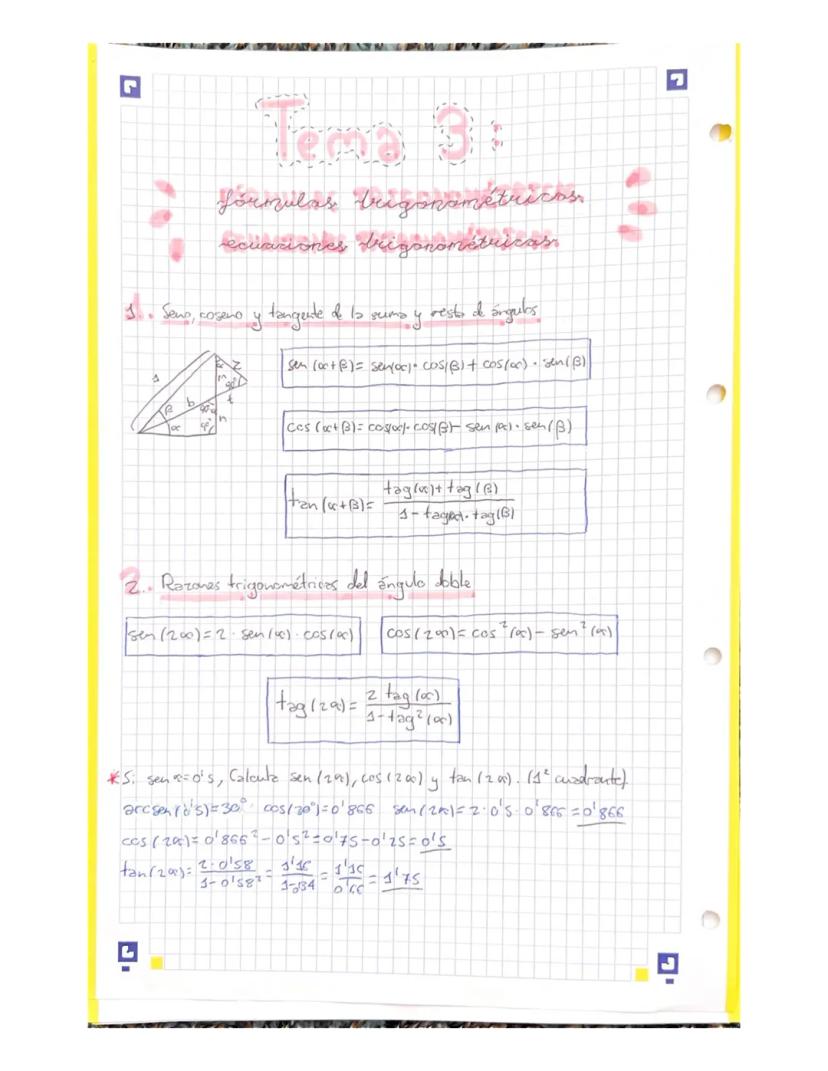 Tema 3:
fórmulas trigonométricas.
ecuaciones trigonométricas.
1. Seno, coseno y tangente de la suma y resta de ángulos
sen (α+β)= sen(α)· cos(β)+ cos(α) · sen(β)
cos (α+β)= cos(α)· cos(β)- sen (α)· sen(β)
tan (α+β)= tag(α)+ tag(β) / 1- tag(α)· tag(β)
1 β b α m z t n 90° 90° 90°
2. Razones trigonométricas del ángulo doble
sen (2α)=2· sen(α)· cos(α) cos(2α)= cos²(α)- sen²(α)
tag(2α)= 2 tag(α) / 1-tag²(α)
*Si sen α=0'5, Calcula sen(2α), cos(2α) y tan(2α). (1º cuadrante).
arcsen(0'5)=30° cos(30°)=0'866 sen(2α)=2·0'5·0'866=0'866
cos(2α)=0'866²-0'5²=0'75-0'25=0'5
tan(2α)= 2·0'58 / 1-0'58² = 1'16 / 1-0'34 = 1'16 / 0'66 = 1'75